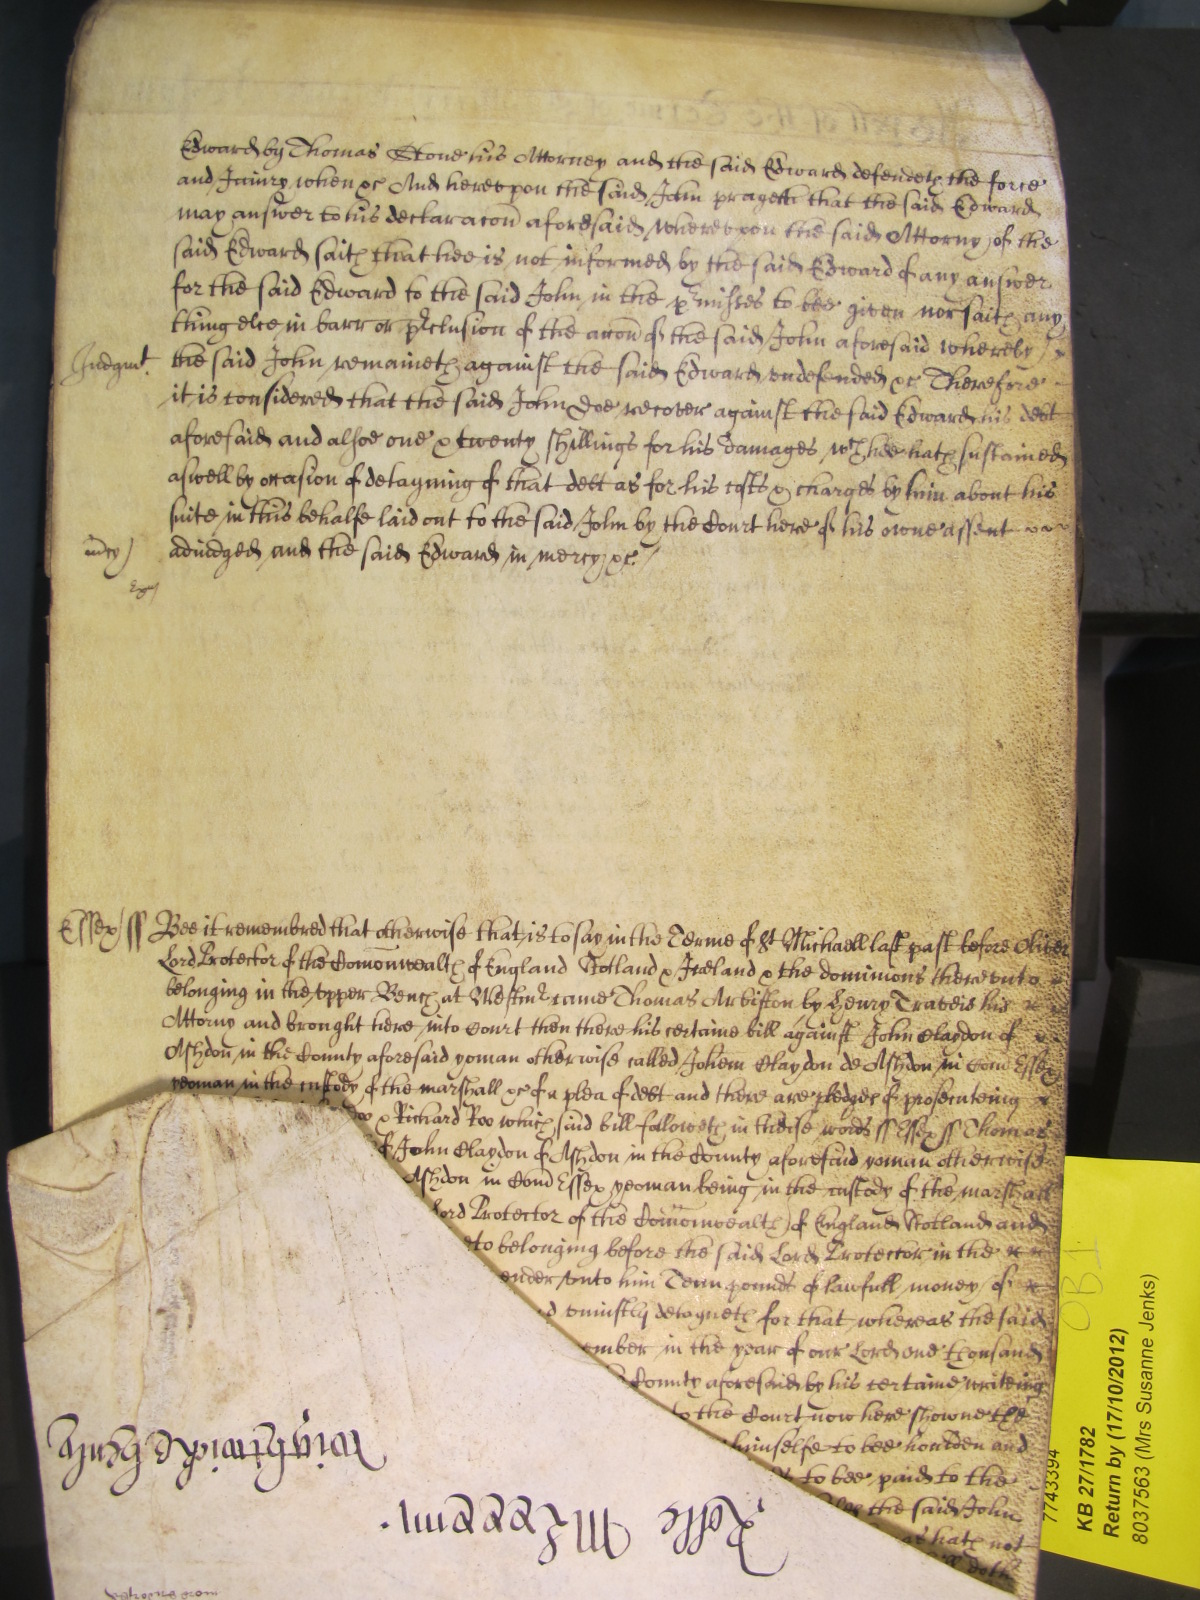 Edward by Thomas Stone his Attorney and the said Edward defendeth the force
and Iniury when &c And herevpon the said John prayeth that the said Edward
may answer to his declaracon aforesaid wherevpon the said Attorny of the
said Edward saith that hee is not informed by the said Edward of any answer
for the said Edward to the said John in the p'misses to bee given nor saith any
thing else in barr or p'clusion of the accon of the said John aforesaid whereby
Iudgmt. the said John remaineth against the said Edward vndefended &c Therefore
it is considered that the said John Doe recover against the said Edward his debt
aforesaid and alsoe one & twenty shillings for his damages wch hee hath sustained
aswell by occasion of detayning of that debt as for his costs & charges by him about his
suite in this behalfe laid out to the said John by the Court here of his owne assent
mcy adiudged and the said Edward in mercy &c.
Essex ss Bee it remembred that otherwise that is to say in the Terme of St Michaell last past before Oliver
Lord Protector of the Comonwealth of England Scotland & Ireland & the dominions therevnto
belonging in the vpper Bench at Westmr came Thomas by Henry Travers his
Attorny and brought here into Court then there his certaine bill against John Claydon of
Ashdon in the County aforesaid yoman otherwise called Johem Claydon de Ashdon in Com Essex
yeoman in the custody of the marshall &c of a plea of debt and there are pledges of prosecuteing
Doo & Richard Roo which said bill followeth in theise words ss Essex ss Thomas
of John Claydon of Ashdon in the County aforesaid yoman otherwise
Ashdon in Com Essex yeoman being in the custody of the marshall
Lord Protector of the Comonwealth of England Scotland and
to belonging before the said Lord Protector in the
ender vnto him Tenn pounds of lawfull money of
d vniustly detayneth for that whereas the said
ember in the year of our Lord one thousand
County aforesaid by his certaine writeing
to the Court now here showne the
himselfe to bee houlden and
to bee paid to the
the said John
as hath not
doth
Wightwicke Henly
Rolle
7743394
KB 27/1782
Return by (17/10/2012)
8037563 (Mrs Susanne Jenks)
OB 1